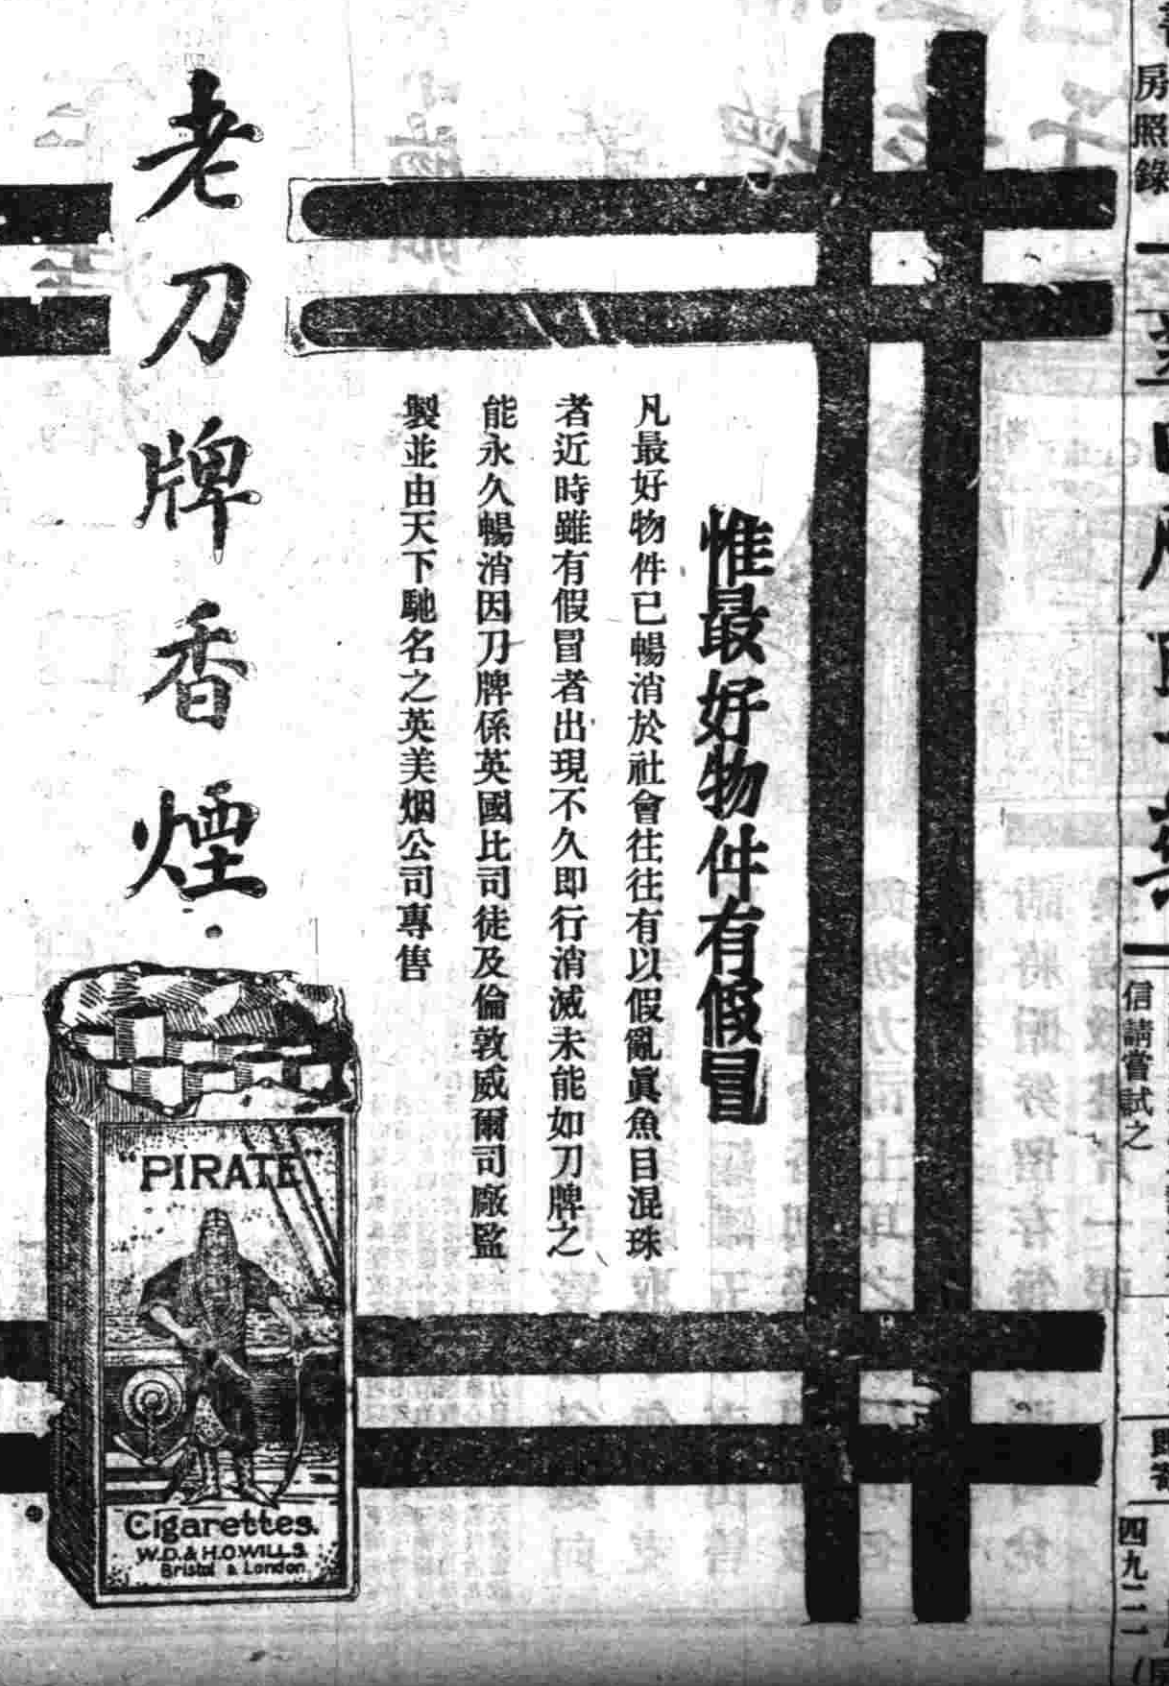 惟最好物件有假冒
凡最好物件已暢消於社會往往有以假亂眞魚目混珠
者近時雖有假冒者出現不久即行消滅未能如刀牌之
能永久暢消因刀牌係英國比司徒及倫敦威爾司廠監
製並由天下馳名之英美烟公司專售
老刀牌香煙
"PIRATE"
Cigarettes.
W.D. & H.O. WILLS.
Bristol & London
房照錄
信請嘗試之
四九二二